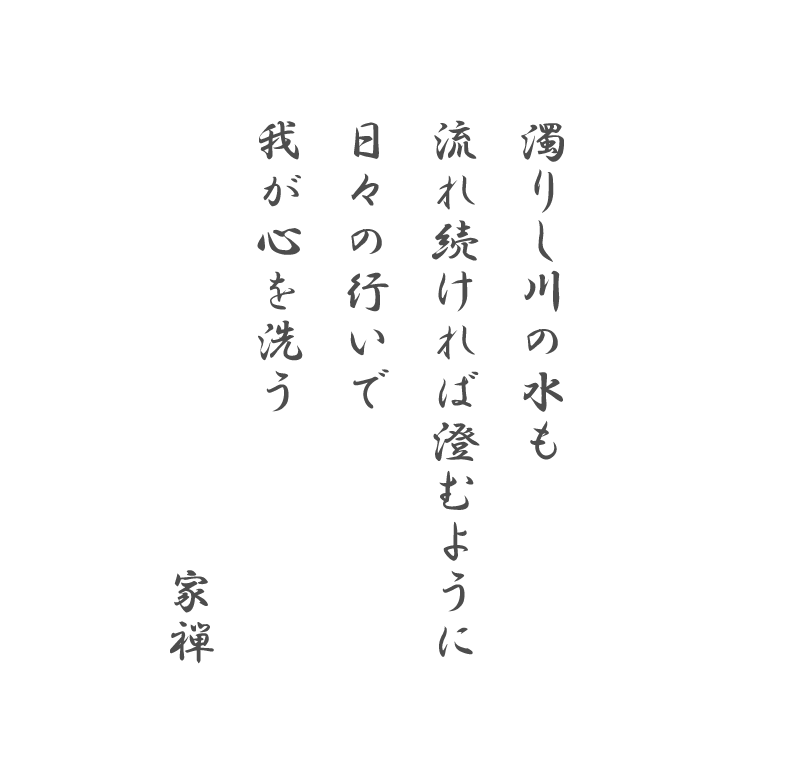 濁りし川の水も
流れ続ければ澄むように
日々の行いで
我が心を洗う
家禅